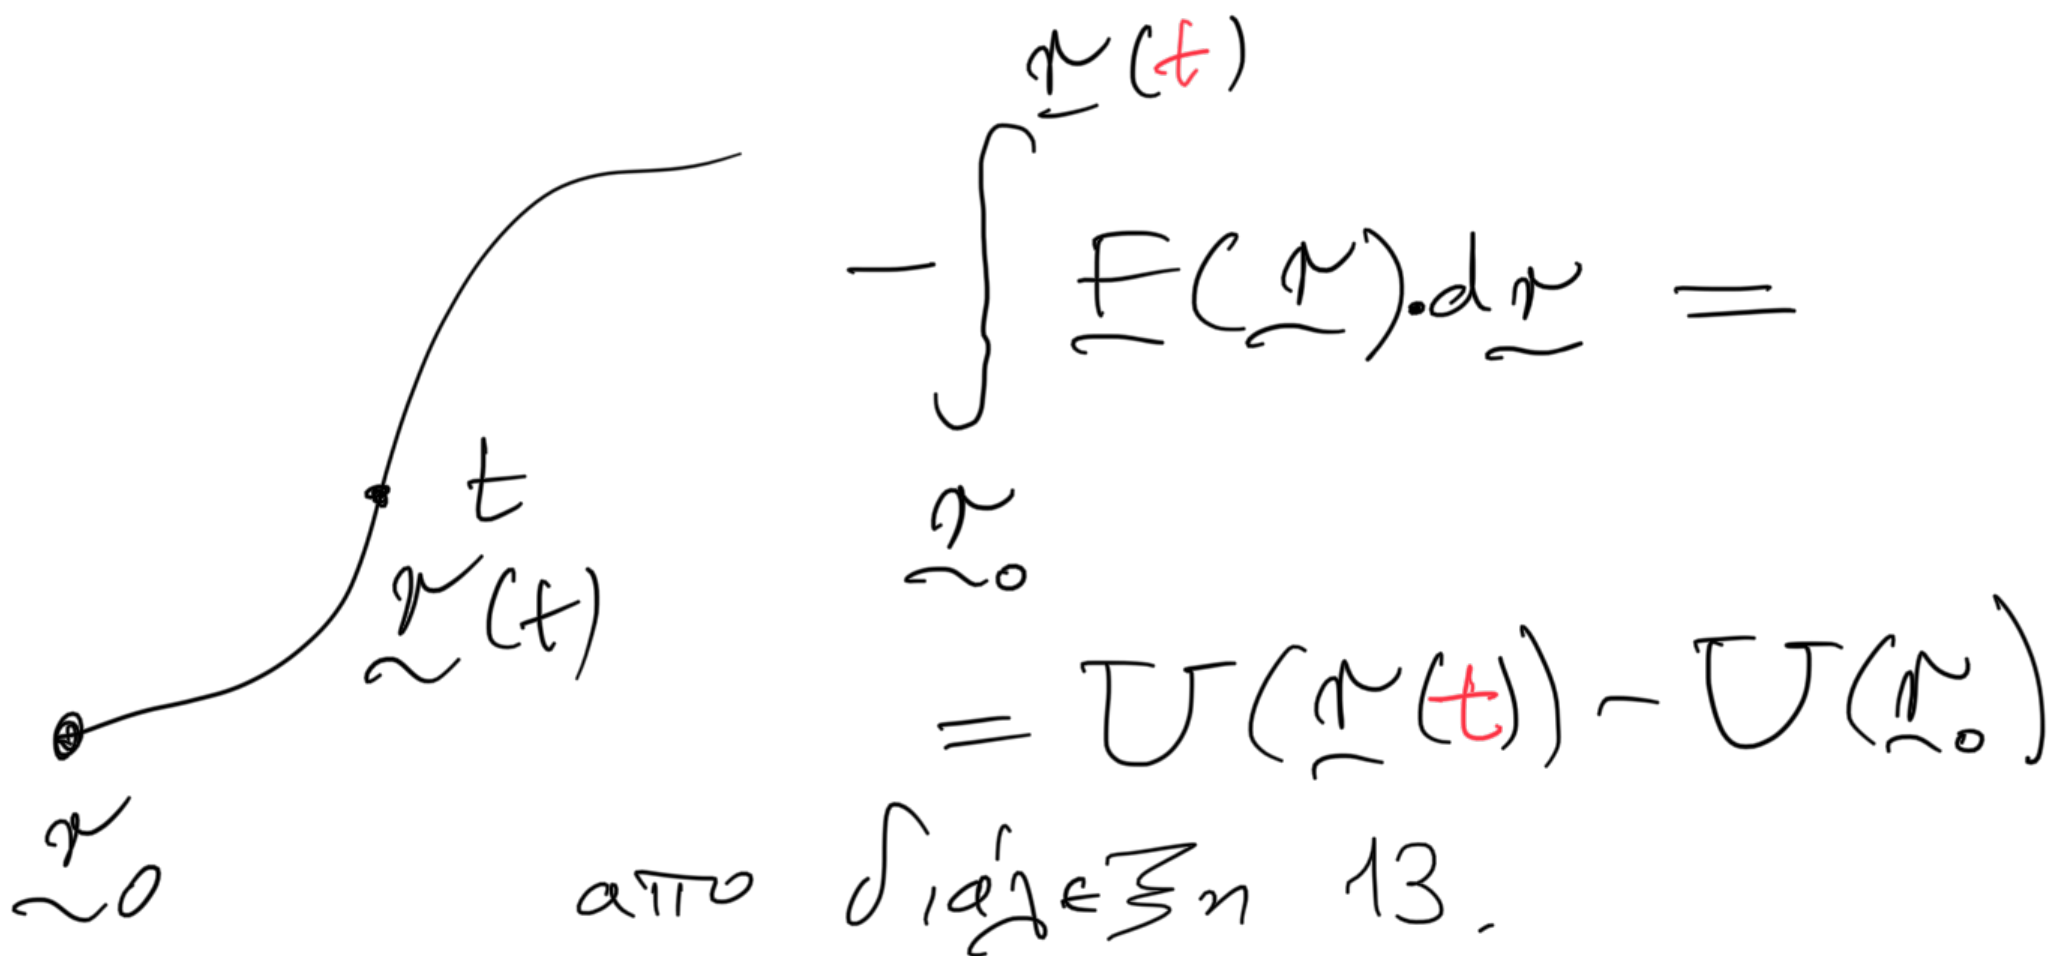 t
r(t)
r₀
-∫_{r₀}^{r(t)} F(r).dr =
= U(r(t)) - U(r₀)
απο διάλεξη 13.